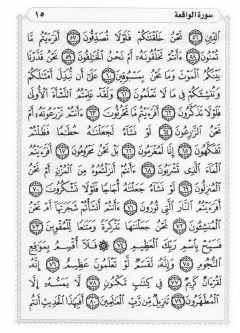 سورة الواقعة ١٥
ٱلدِّينِ ۝٥٦ نَحْنُ خَلَقْنَٰكُمْ فَلَوْلَا تُصَدِّقُونَ ۝٥٧ أَفَرَءَيْتُم مَّا
تُمْنُونَ ۝٥٨ ءَأَنتُمْ تَخْلُقُونَهُۥٓ أَمْ نَحْنُ ٱلْخَٰلِقُونَ ۝٥٩ نَحْنُ قَدَّرْنَا
بَيْنَكُمُ ٱلْمَوْتَ وَمَا نَحْنُ بِمَسْبُوقِينَ ۝٦٠ عَلَىٰٓ أَن نُّبَدِّلَ أَمْثَٰلَكُمْ
وَنُنشِئَكُمْ فِي مَا لَا تَعْلَمُونَ ۝٦١ وَلَقَدْ عَلِمْتُمُ ٱلنَّشْأَةَ ٱلْأُولَىٰ
فَلَوْلَا تَذَكَّرُونَ ۝٦٢ أَفَرَءَيْتُم مَّا تَحْرُثُونَ ۝٦٣ ءَأَنتُمْ تَزْرَعُونَهُۥٓ أَمْ
نَحْنُ ٱلزَّٰرِعُونَ ۝٦٤ لَوْ نَشَآءُ لَجَعَلْنَٰهُ حُطَٰمًا فَظَلْتُمْ
تَفَكَّهُونَ ۝٦٥ إِنَّا لَمُغْرَمُونَ ۝٦٦ بَلْ نَحْنُ مَحْرُومُونَ ۝٦٧ أَفَرَءَيْتُمُ
ٱلْمَآءَ ٱلَّذِي تَشْرَبُونَ ۝٦٨ ءَأَنتُمْ أَنزَلْتُمُوهُ مِنَ ٱلْمُزْنِ أَمْ نَحْنُ
ٱلْمُنزِلُونَ ۝٦٩ لَوْ نَشَآءُ جَعَلْنَٰهُ أُجَاجًا فَلَوْلَا تَشْكُرُونَ ۝٧٠
أَفَرَءَيْتُمُ ٱلنَّارَ ٱلَّتِي تُورُونَ ۝٧١ ءَأَنتُمْ أَنشَأْتُمْ شَجَرَتَهَآ أَمْ نَحْنُ
ٱلْمُنشِـُٔونَ ۝٧٢ نَحْنُ جَعَلْنَٰهَا تَذْكِرَةً وَمَتَٰعًا لِّلْمُقْوِينَ ۝٧٣
فَسَبِّحْ بِٱسْمِ رَبِّكَ ٱلْعَظِيمِ ۝٧٤ ۞ فَلَآ أُقْسِمُ بِمَوَٰقِعِ
ٱلنُّجُومِ ۝٧٥ وَإِنَّهُۥ لَقَسَمٌ لَّوْ تَعْلَمُونَ عَظِيمٌ ۝٧٦ إِنَّهُۥ
لَقُرْءَانٌ كَرِيمٌ ۝٧٧ فِي كِتَٰبٍ مَّكْنُونٍ ۝٧٨ لَّا يَمَسُّهُۥٓ إِلَّا
ٱلْمُطَهَّرُونَ ۝٧٩ تَنزِيلٌ مِّن رَّبِّ ٱلْعَٰلَمِينَ ۝٨٠ أَفَبِهَٰذَا ٱلْحَدِيثِ أَنتُم